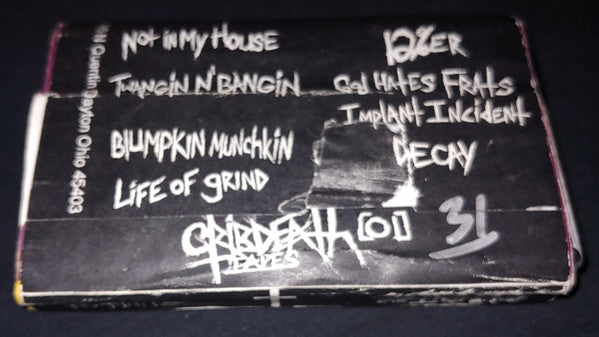 Not in My House
Twangin N' Bangin
Blumpkin Munchkin
Life of Grind
12%er
God Hates Frats
Implant Incident
Decay
Cribdeath
Tapes
[01]
31
N Quentin Dayton Ohio 45403